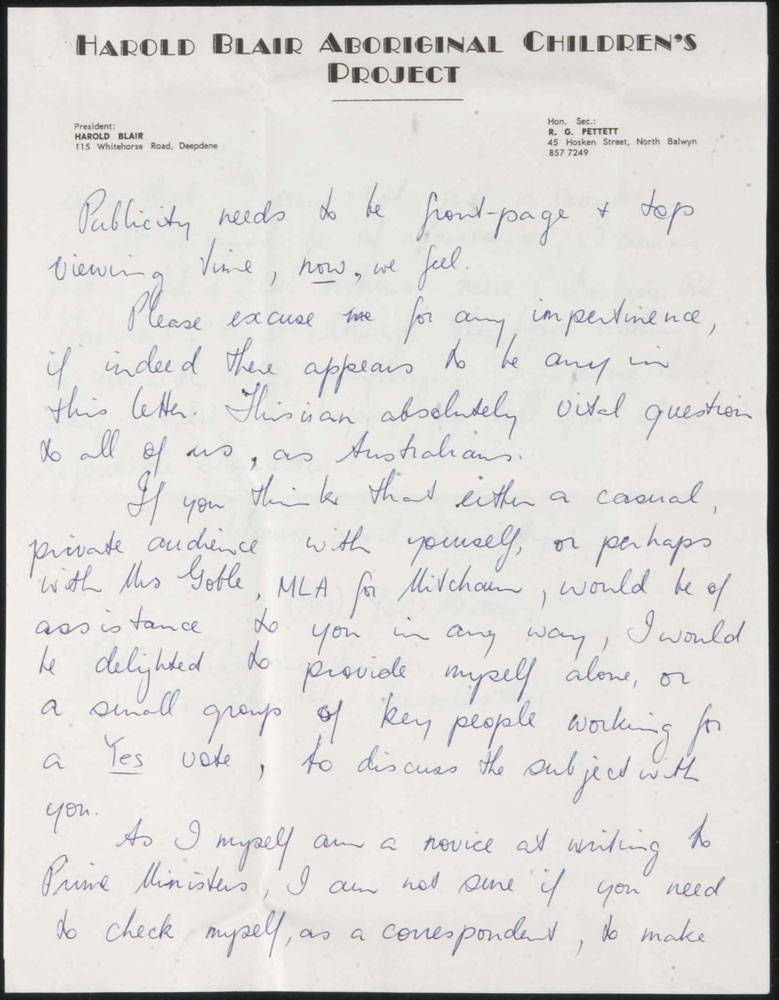 HAROLD BLAIR ABORIGINAL CHILDREN'S
PROJECT
President:
HAROLD BLAIR
115 Whitehorse Road, Deepdene
Hon. Sec.:
R. G. PETTETT
45 Hosken Street, North Balwyn
857 7249
Publicity needs to be front-page & top
viewing time, now, we feel.
Please excuse me for any impertinence,
if indeed there appears to be any in
this letter. This is an absolutely vital question
to all of us, as Australians.
If you think that either a casual,
private audience with yourself, or perhaps
with Mrs Goble, MLA for Mitcham, would be of
assistance to you in any way, I would
be delighted to provide myself alone, or
a small group of key people working for
a Yes vote, to discuss the subject with
you.
As I myself am a novice at writing to
Prime Ministers, I am not sure if you need
to check myself, as a correspondent, to make